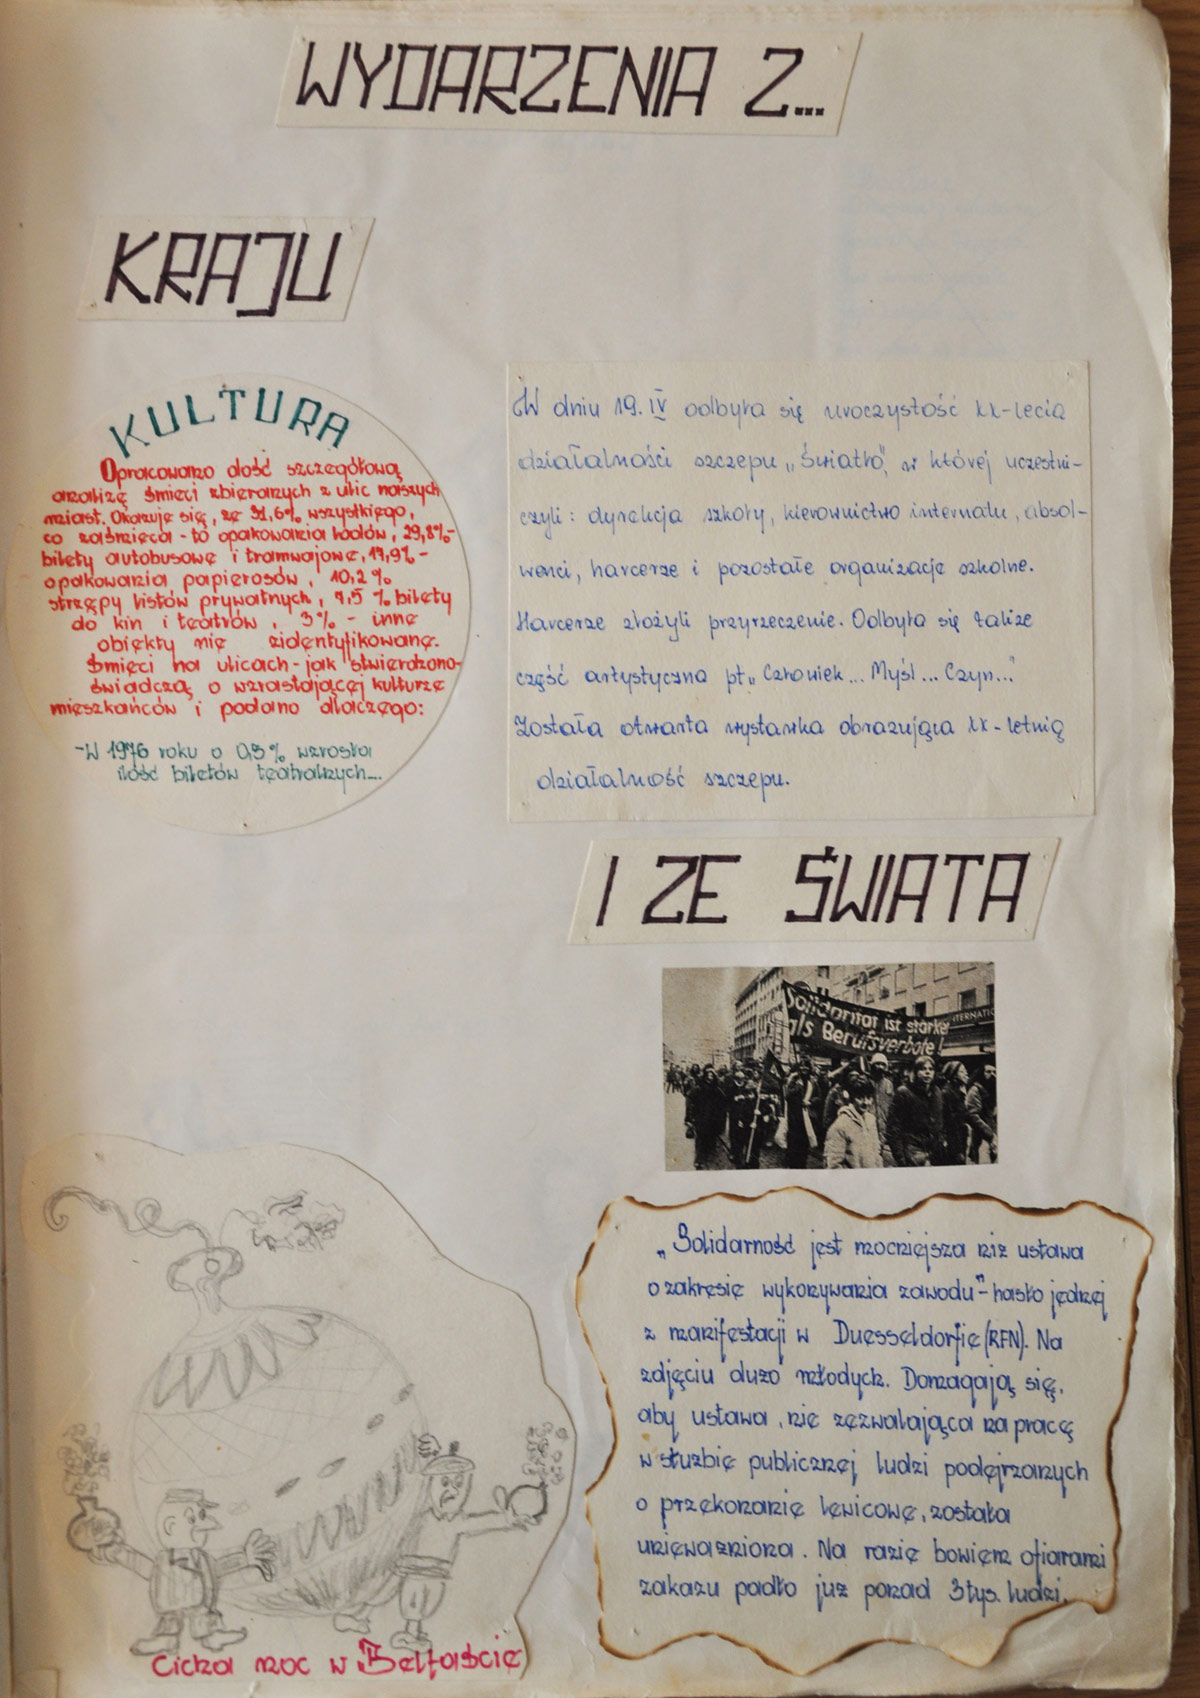 WYDARZENIA Z...
KRAJU
KULTURA
Opracowano dość szczegółową
analizę śmieci zbieranych z ulic naszych
miast. Okazuje się, że 31,6% wszystkiego,
co zaśmieca - to opakowania lodów, 29,8%-
bilety autobusowe i tramwajowe, 17,9% -
opakowania papierosów, 10,2%
strzępy listów prywatnych, 7,5 % bilety
do kin i teatrów, 3% - inne
obiekty nie zidentyfikowane.
Śmieci na ulicach - jak stwierdzono-
świadczą o wzrastającej kulturze
mieszkańców i podano dlaczego:
-W 1976 roku o 0,5% wzrosła
ilość biletów teatralnych...
W dniu 19. IV odbyła się uroczystość XX-lecia
działalności szczepu „Światło”, w której uczestni-
czyli: dyrekcja szkoły, kierownictwo internatu, absol-
wenci, harcerze i pozostałe organizacje szkolne.
Harcerze złożyli przyrzeczenie. Odbyła się także
część artystyczna pt „Człowiek... Myśl... Czyn...”
Została otwarta wystawka obrazująca XX-letnią
działalność szczepu.
I ZE ŚWIATA
Solidarität ist stärker
als Berufsverbote!
INTERNATIO
„Solidarność jest mocniejsza niż ustawa
o zakresie wykonywania zawodu” - hasło jednej
z manifestacji w Duesseldorfie (RFN). Na
zdjęciu dużo młodych. Domagają się,
aby ustawa, nie zezwalająca na pracę
w służbie publicznej ludzi podejrzanych
o przekonanie lewicowe, została
unieważniona. Na razie bowiem ofiarami
zakazu padło już ponad 3 tys. ludzi.
Cicha noc w Belfaście